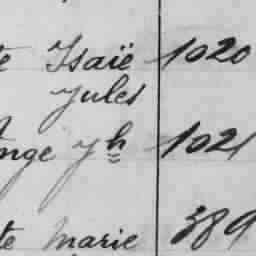 te Isaïe 1020
Jules
Ange Jh 1021
te Marie 389